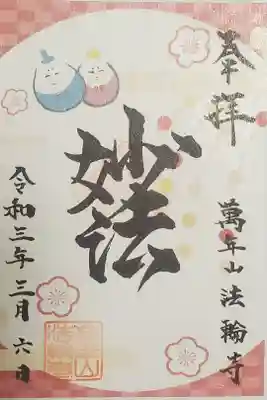 奉拝
萬年山法輪寺
妙法
令和三年三月六日